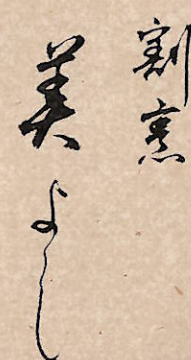 割烹
美よし